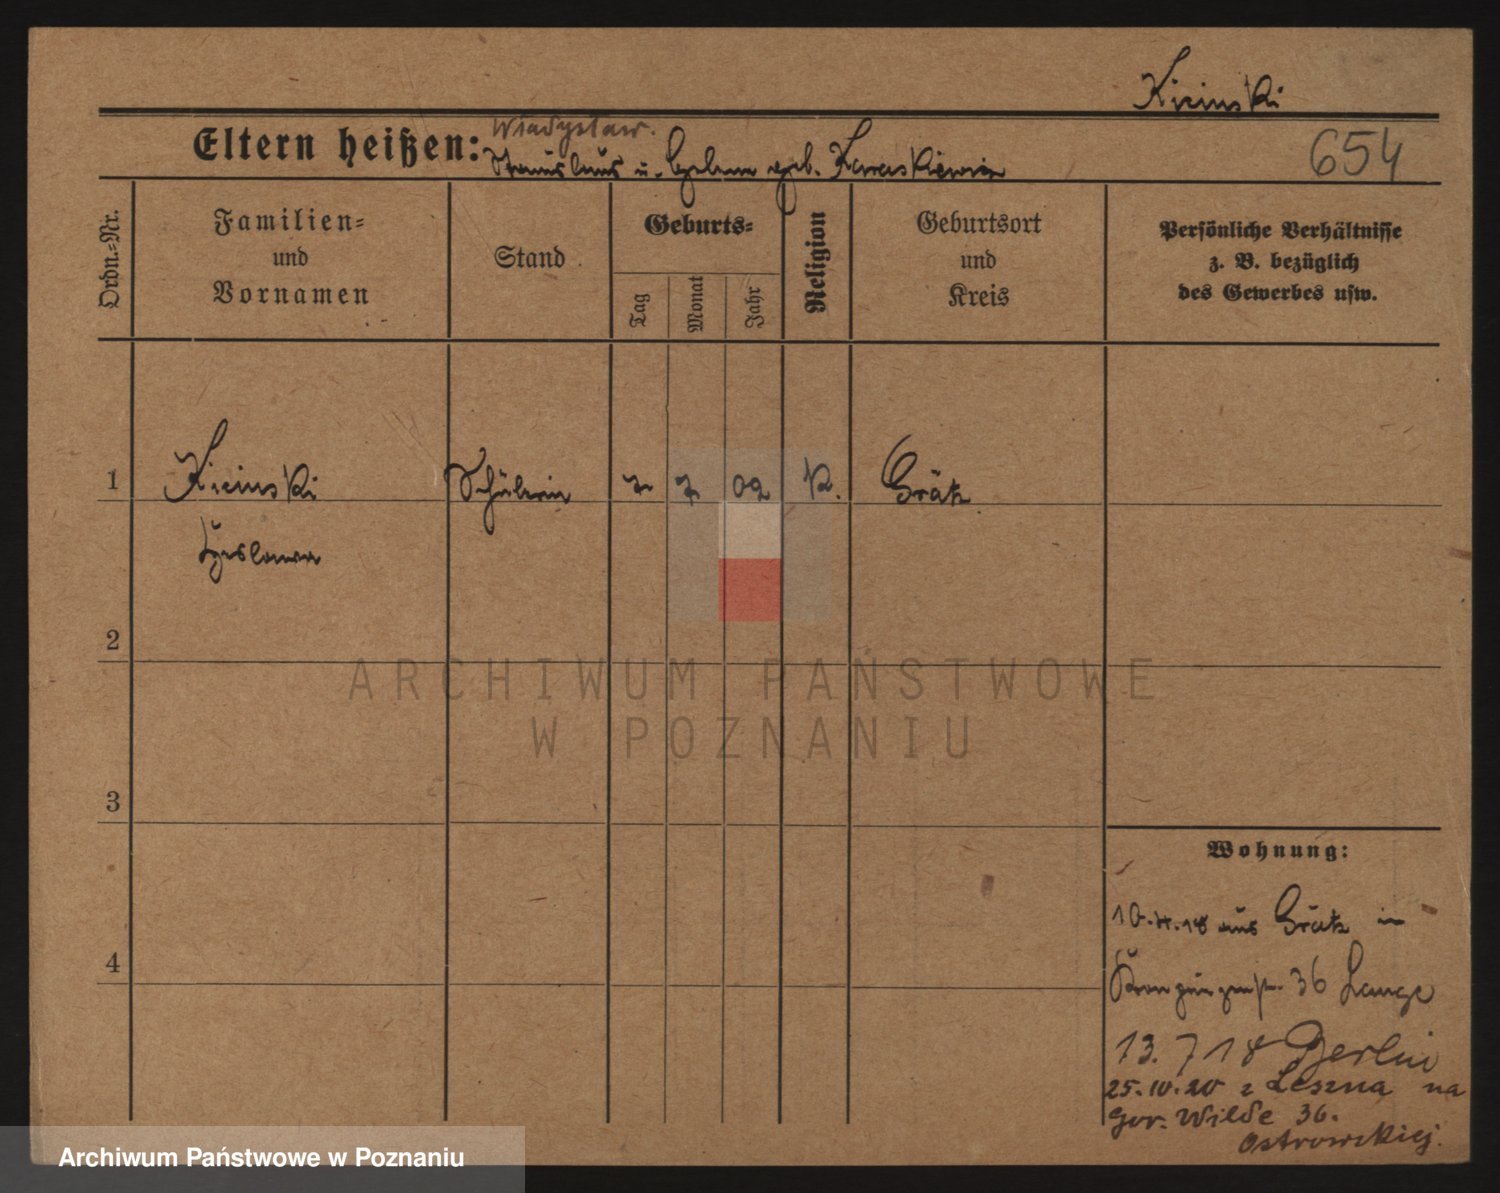 Kicinski
Eltern heißen:
Władysław.
Stanislaus u. Helene geb. Karaskiewicz
654
Ordn.=Nr.
Familien=
und
Vornamen
Stand
Geburts=
Tag
Monat
Jahr
Religion
Geburtsort
und
Kreis
Persönliche Verhältnisse
z. B. bezüglich
des Gewerbes usw.
1
Kicinski
Schülerin
7
7
02
K.
Grätz
Czeslawa
2
3
4
Wohnung:
10.4.18 aus Grätz in
Kronprinzenstr. 36 Lange
13. 7 18 Berlin
25.10.20 z Leszna na
Gór. Wilde 36.
Ostrowskiej.
ARCHIWUM PAŃSTWOWE
W POZNANIU
Archiwum Państwowe w Poznaniu